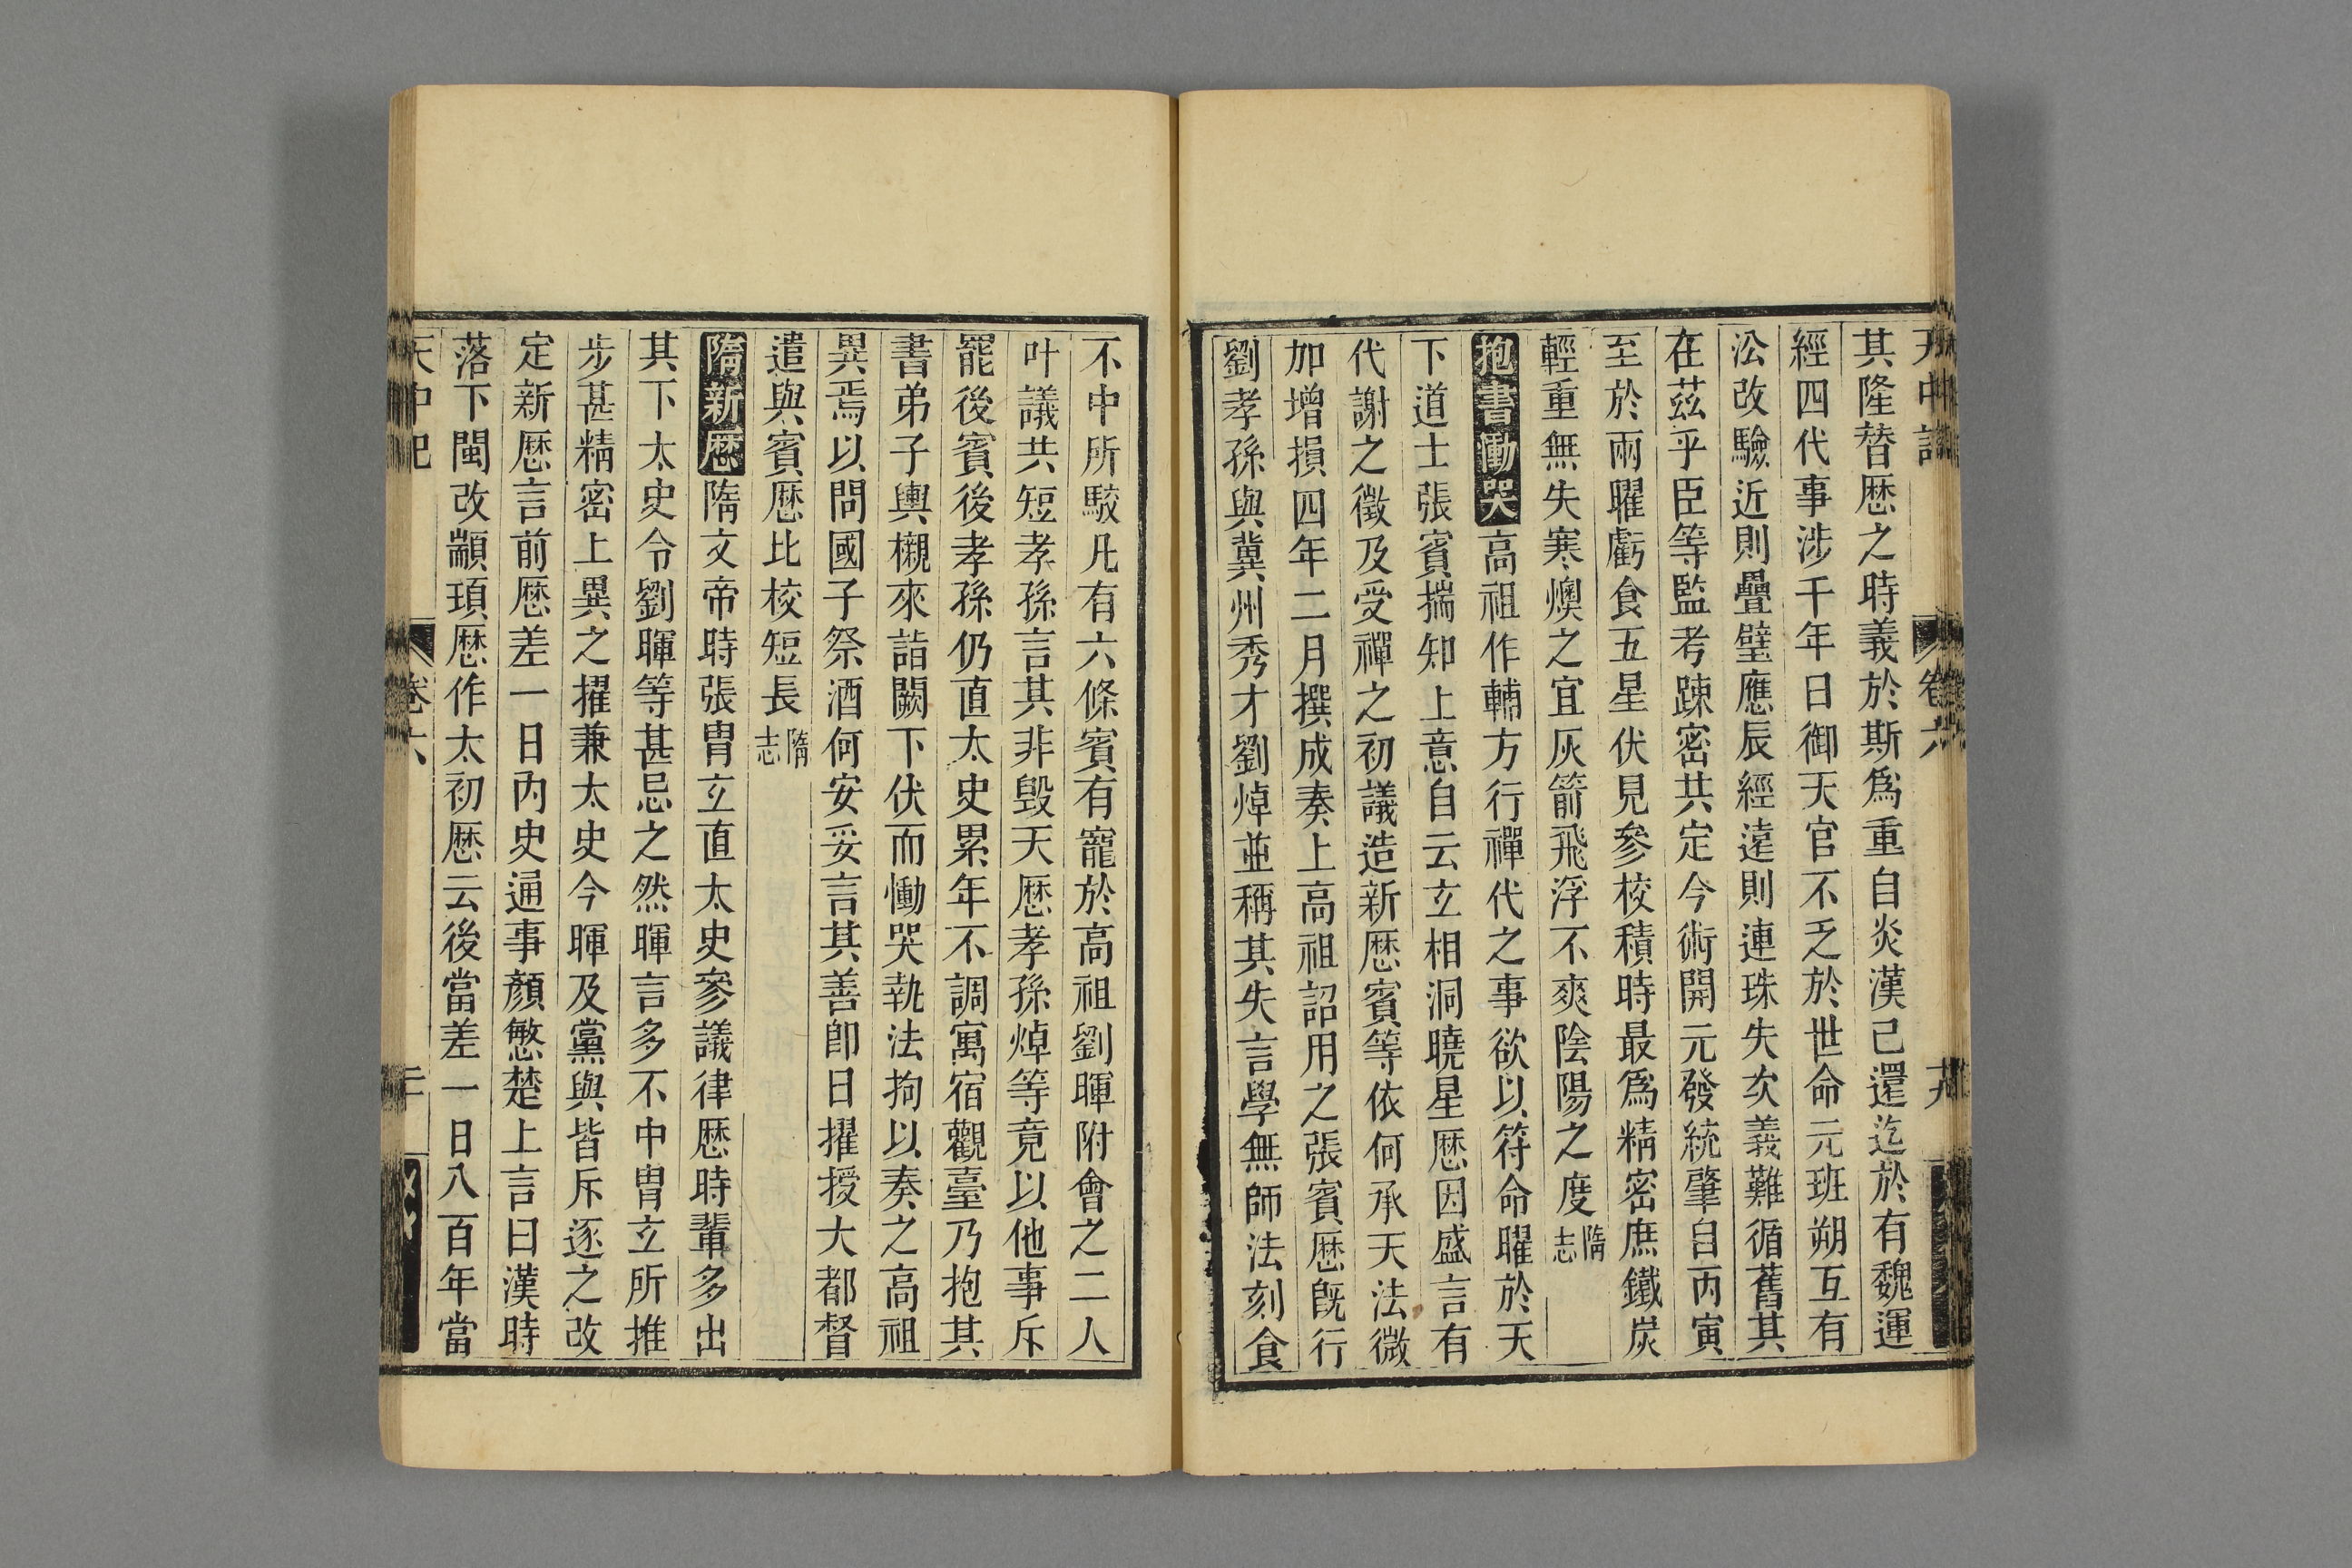 天中記 卷六 十九
其隆替厯之時義於斯爲重自炎漢已還迄於有魏運
經四代事涉千年日御天官不乏於世命元班朔互有
㳂改驗近則疊璧應辰經遠則連珠失次義難循舊其
在茲乎臣等監考踈密共定今術開元發統肇自丙寅
至於兩曜虧食五星伏見參校積時最爲精密庶鐵炭
輕重無失寒燠之宜灰箭飛浮不爽陰陽之度隋志
抱書慟哭高祖作輔方行禪代之事欲以符命曜於天
下道士張賓揣知上意自云立相洞曉星厯因盛言有
代謝之徵及受禪之初議造新厯賓等依何承天法微
加增損四年二月撰成奏上高祖詔用之張賓厯旣行
劉孝孫與冀州秀才劉焯並稱其失言學無師法刻食
不中所駮凡有六條賓有寵於高祖劉暉附會之二人
叶議共短孝孫言其非毀天厯孝孫焯等竟以他事斥
罷後賓後孝孫仍直太史累年不調寓宿觀臺乃抱其
書弟子輿櫬來詣闕下伏而慟哭執法拘以奏之高祖
異焉以問國子祭酒何安妥言其善卽日擢授大都督
遣與賓厯比校短長隋志
隋新厯隋文帝時張胄立直太史參議律厯時輩多出
其下太史令劉暉等甚忌之然暉言多不中胄立所推
步甚精密上異之擢兼太史今暉及黨與皆斥逐之改
定新厯言前厯差一日內史通事顏慜楚上言曰漢時
落下閎改顓頊厯作太初厯云後當差一日八百年當
天中記 卷六 二十